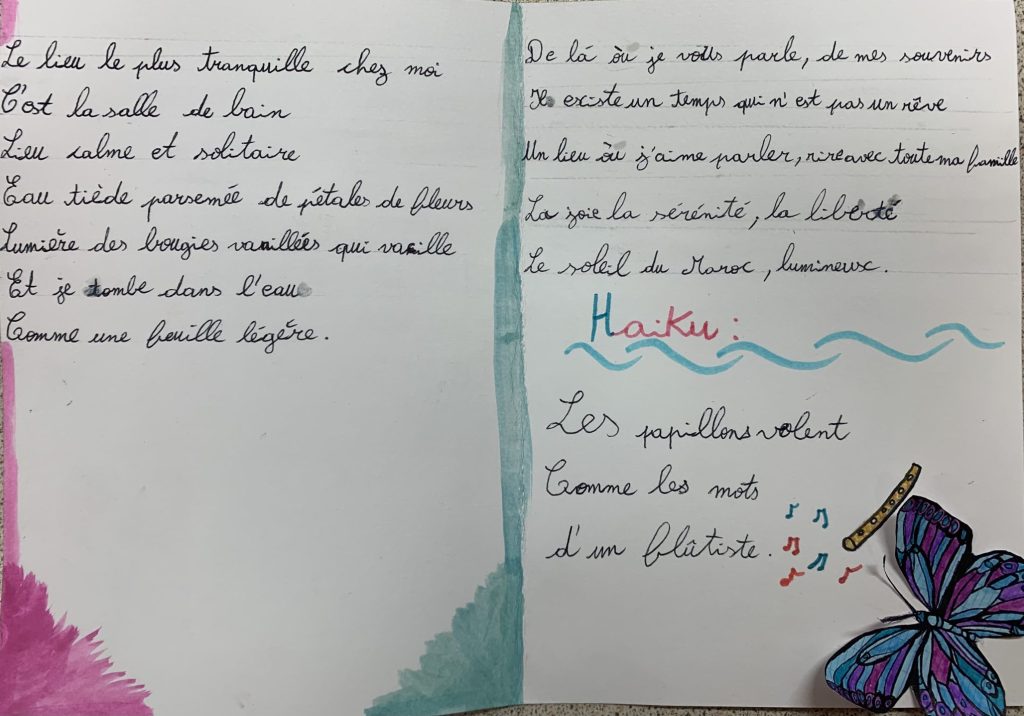 Le lieu le plus tranquille chez moi
C'est la salle de bain
Lieu calme et solitaire
Eau tiède parsemée de pétales de fleurs
Lumière des bougies vanillées qui vacille
Et je tombe dans l'eau
Comme une feuille légère.
De lá où je vous parle, de mes souvenirs
Il existe un temps qui n'est pas un rêve
Un lieu où j'aime parler, rire avec toute ma famille
La joie la sérénité, la liberté
Le soleil du Maroc, lumineux.
Haiku :
Les papillons volent
Comme les mots
d'un flûtiste.